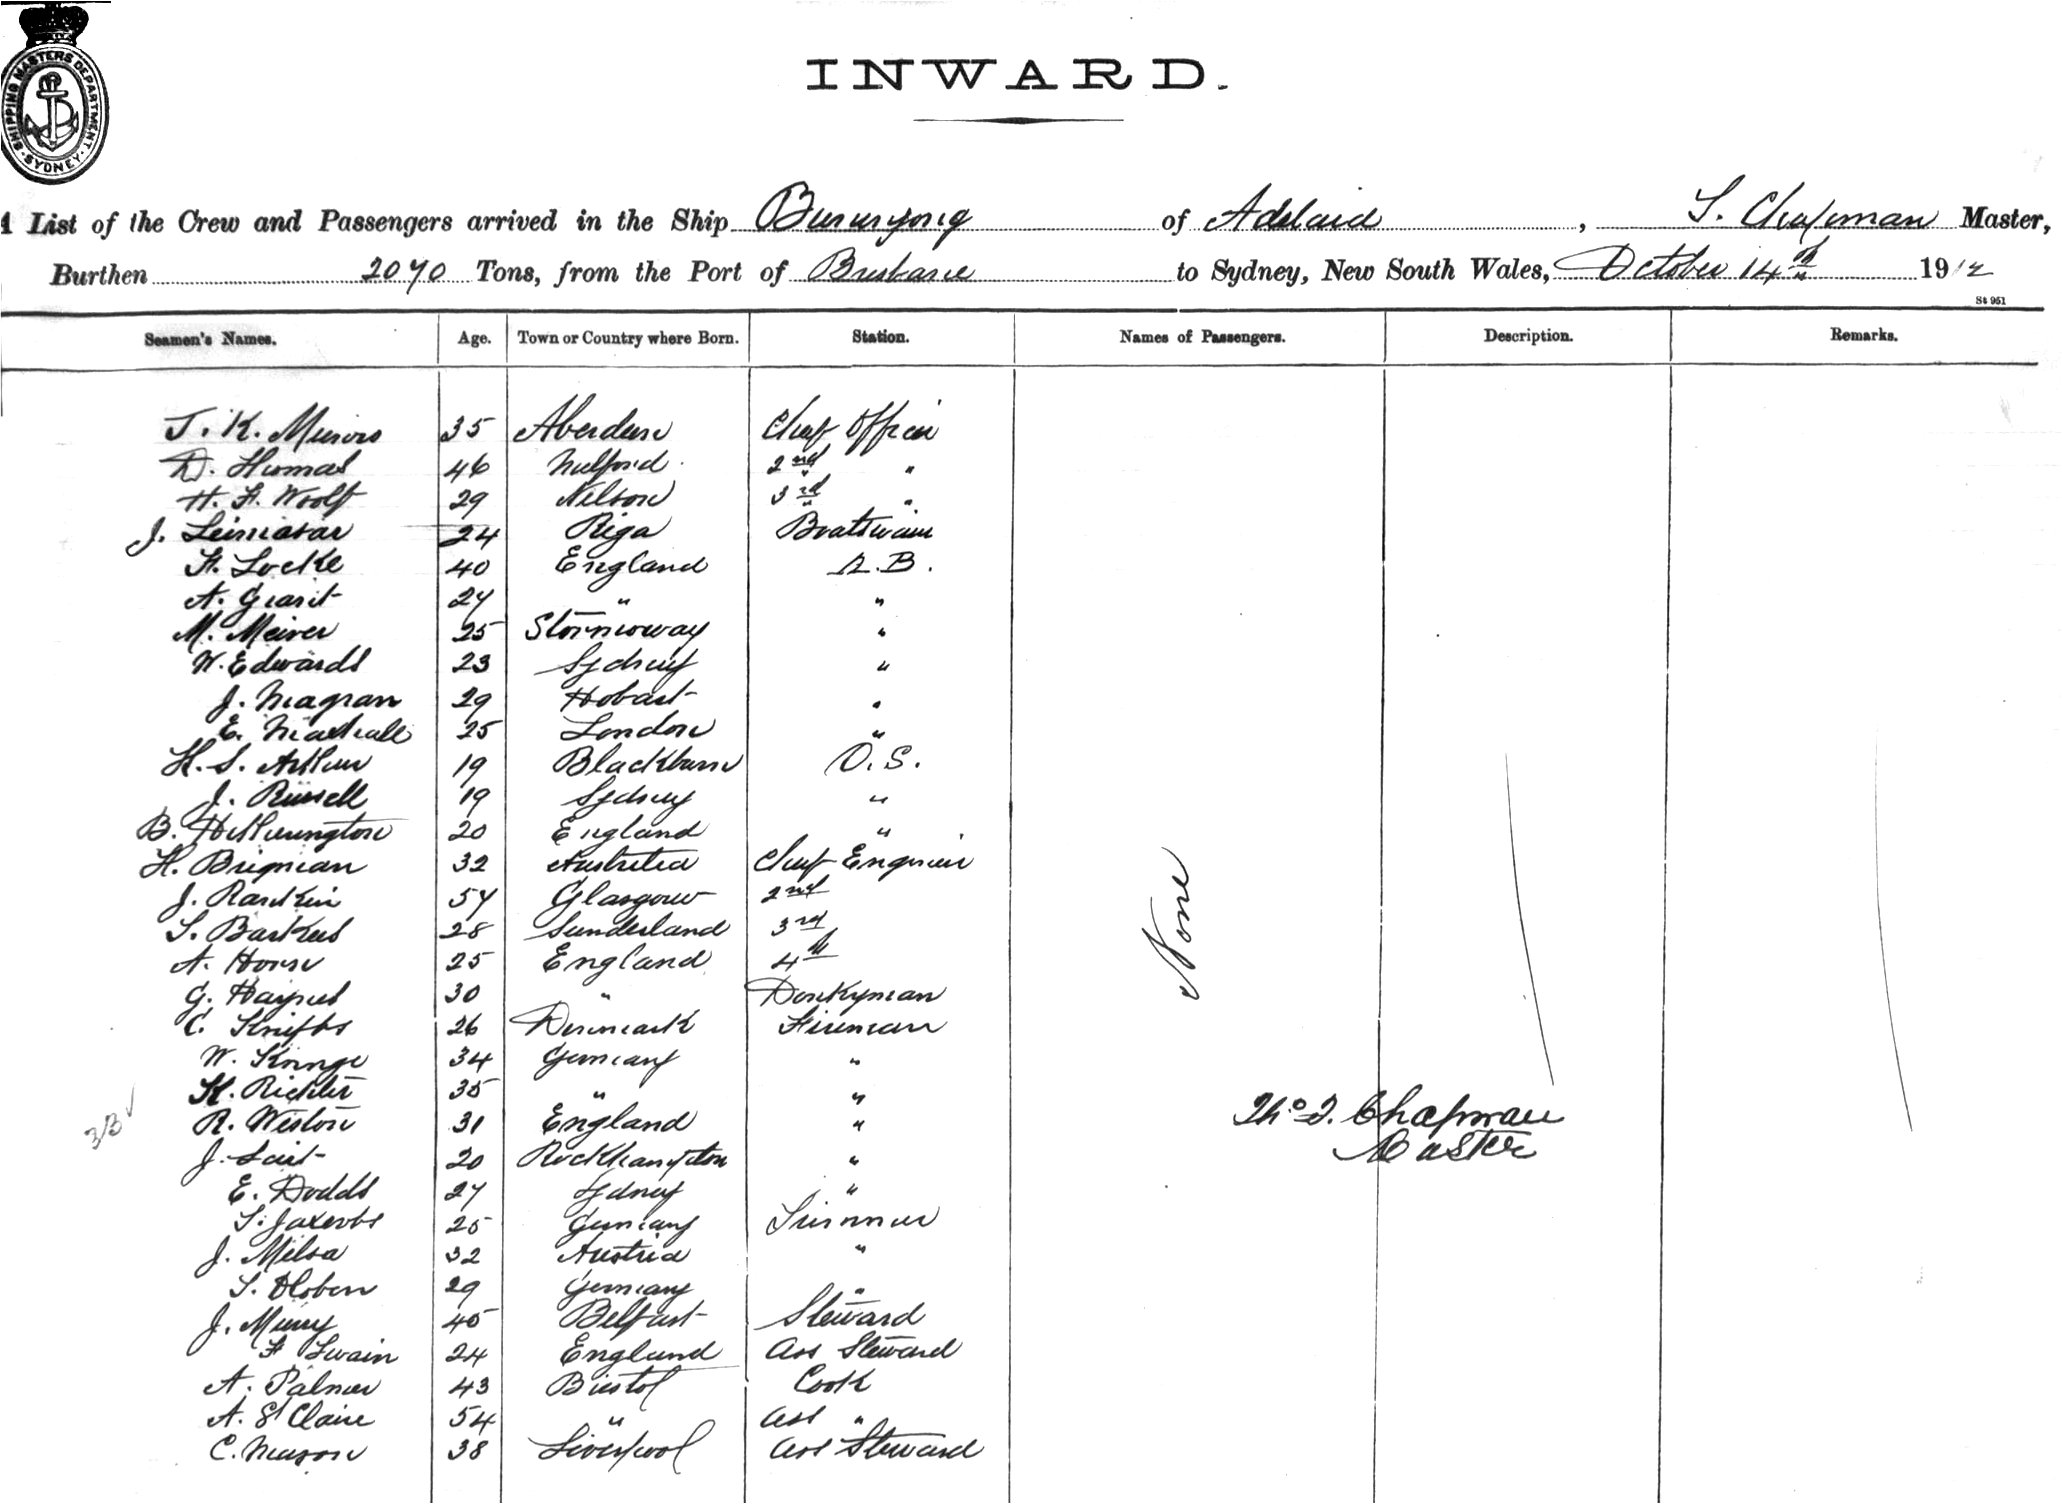 SHIPPING MASTERS DEPARTMENT · SYDNEY ·
INWARD.
A List of the Crew and Passengers arrived in the Ship Burwryong of Adelaid, T. Chapman Master,
Burthen 2070 Tons, from the Port of Brisbane to Sydney, New South Wales, October 14th 1912
St 951
Seamen's Names. Age. Town or Country where Born. Station. Names of Passengers. Description. Remarks.
J. K. 35 Aberdeen Chief Officer
D. Thomas 46 Milford 2nd "
H. F. Woolf 29 Nelson 3rd "
J. 24 Riga Boatswain
F. Locke 40 England A.B.
A. Grant 27 " "
M. Meiver 25 Stornoway "
W. Edwards 23 Sydney "
J. Magran 29 Hobart "
E. 25 London "
H. S. Arthur 19 Blackburn O.S.
J. Russell 19 Sydney "
B. Hetherington 20 England "
H. Brignian 32 Australia Chief Engineer
J. Rankin 57 Glasgow 2nd
T. Barkus 28 Sunderland 3rd
A. Horne 25 England 4th
None
G. Haynes 30 " Donkyman
C. 26 Denmark Fireman
W. 34 Germany "
K. Richter 35 " "
Tho. T. Chapman
R. Weston 31 England "
Master
3/3
J. Lait 20 Rockhampton "
E. Dodds 27 Sydney "
T. Jaxobs 25 Germany Trimmer
J. Milsa 32 Austria "
T. Hoben 29 Germany "
J. 45 Belfast Steward
F Swain 24 England Ass Steward
A. Palmer 43 Bristol Cook
A. St Claire 54 " Ass "
C. Mason 38 Liverpool Ass Steward